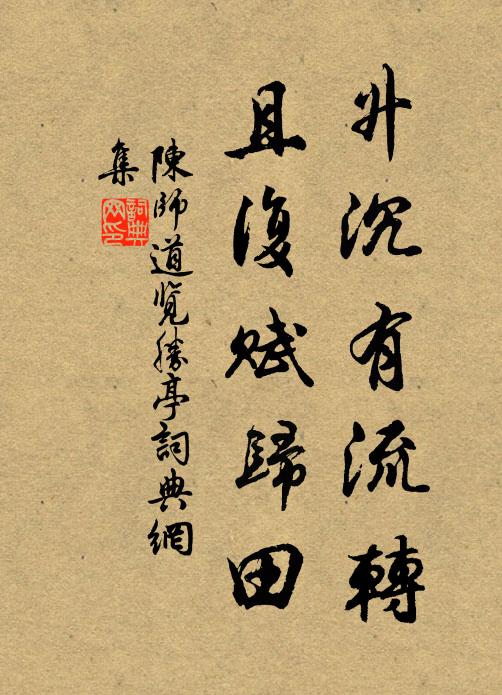 升沉有流轉
且復賦歸田
陳師道覽勝亭詞典網
集
詞典網印